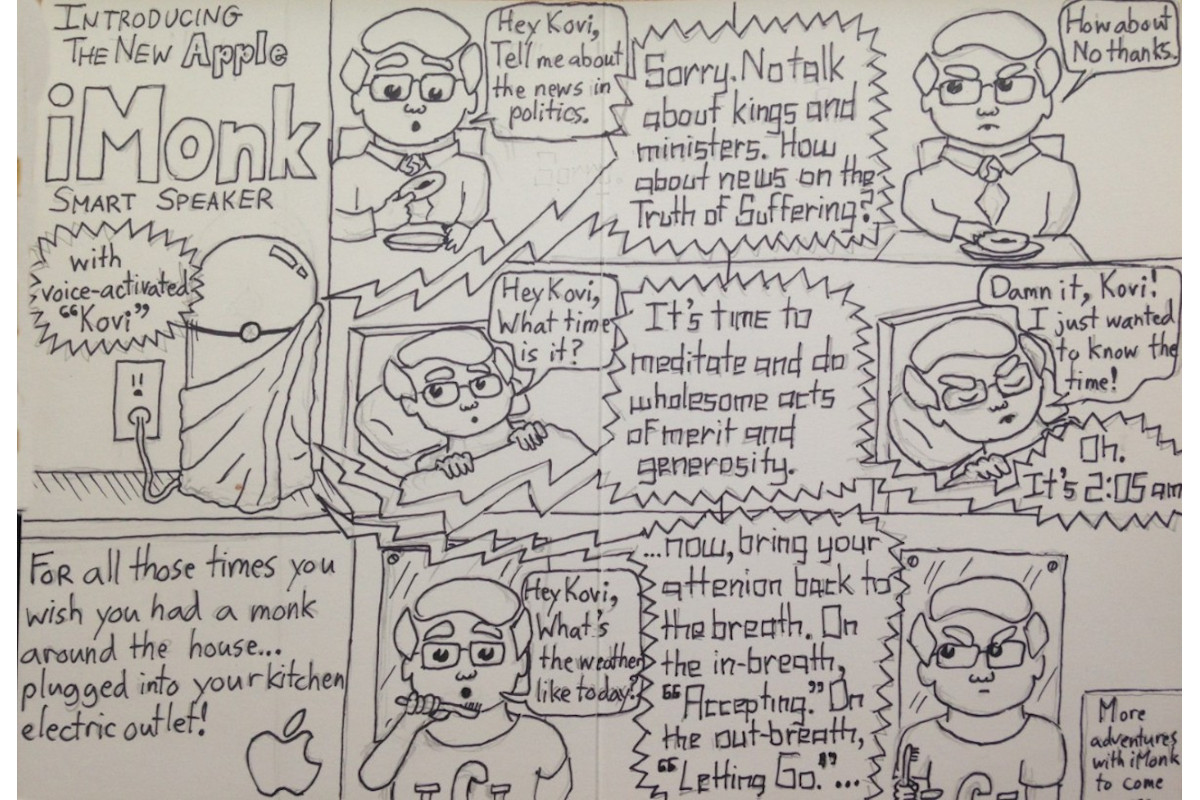 INTRODUCING
THE NEW Apple
iMonk
SMART SPEAKER
with
voice-activated
"Kovi"
Hey Kovi,
Tell me about
the news in
politics.
Sorry. No talk
about kings and
ministers. How
about news on the
Truth of Suffering?
How about
No thanks.
Hey Kovi,
What time
is it?
It's time to
meditate and do
wholesome acts
of merit and
generosity.
Damn it, Kovi!
I just wanted
to know the
time!
Oh.
It's 2:05 am
For all those times you
wish you had a monk
around the house...
plugged into your kitchen
electric outlet!
Hey Kovi,
What's
the weather
like today?
...now, bring your
attenion back to
the breath. On
the in-breath,
"Accepting." On
the out-breath,
"Letting Go." ...
More
adventures
with iMonk
to come